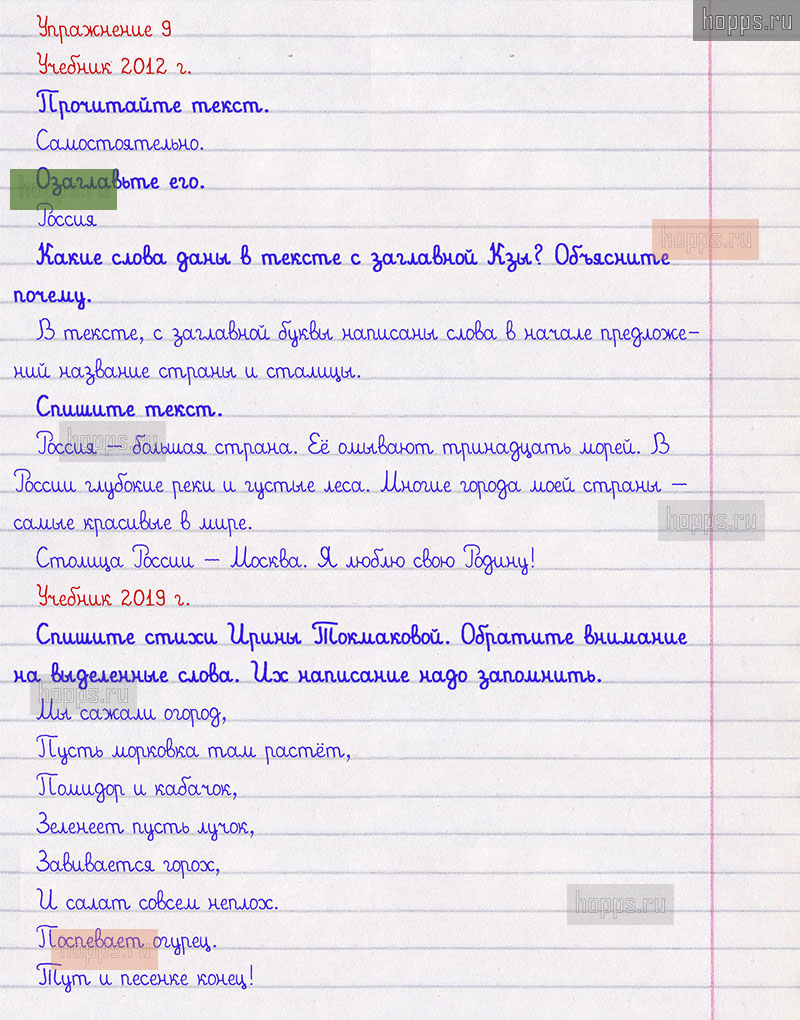 hopps.ru
Упражнение 9
Учебник 2012 г.
Прочитайте текст.
Самостоятельно.
Озаглавьте его.
hopps.ru
Россия
hopps.ru
Какие слова даны в тексте с заглавной Кзы? Объясните
почему.
В тексте, с заглавной буквы написаны слова в начале предложе-
ний название страны и сталицы.
Спишите текст.
hopps.ru
Россия – большая страна. Её омывают тринадцать морей. В
России глубокие реки и густые леса. Многие города моей страны –
hopps.ru
самые красивые в мире.
Столица России – Москва. Я люблю свою Родину!
Учебник 2019 г.
Спишите стихи Ирины Токмаковой. Обратите внимание
на выделенные слова. Их написание надо запомнить.
hopps.ru
Мы сажали огород,
Пусть морковка там растёт,
Помидор и кабачок,
Зеленеет пусть лучок,
Завивается горох,
И салат совсем неплох.
hopps.ru
Поспевает огурец.
hopps.ru
Тут и песенке конец!